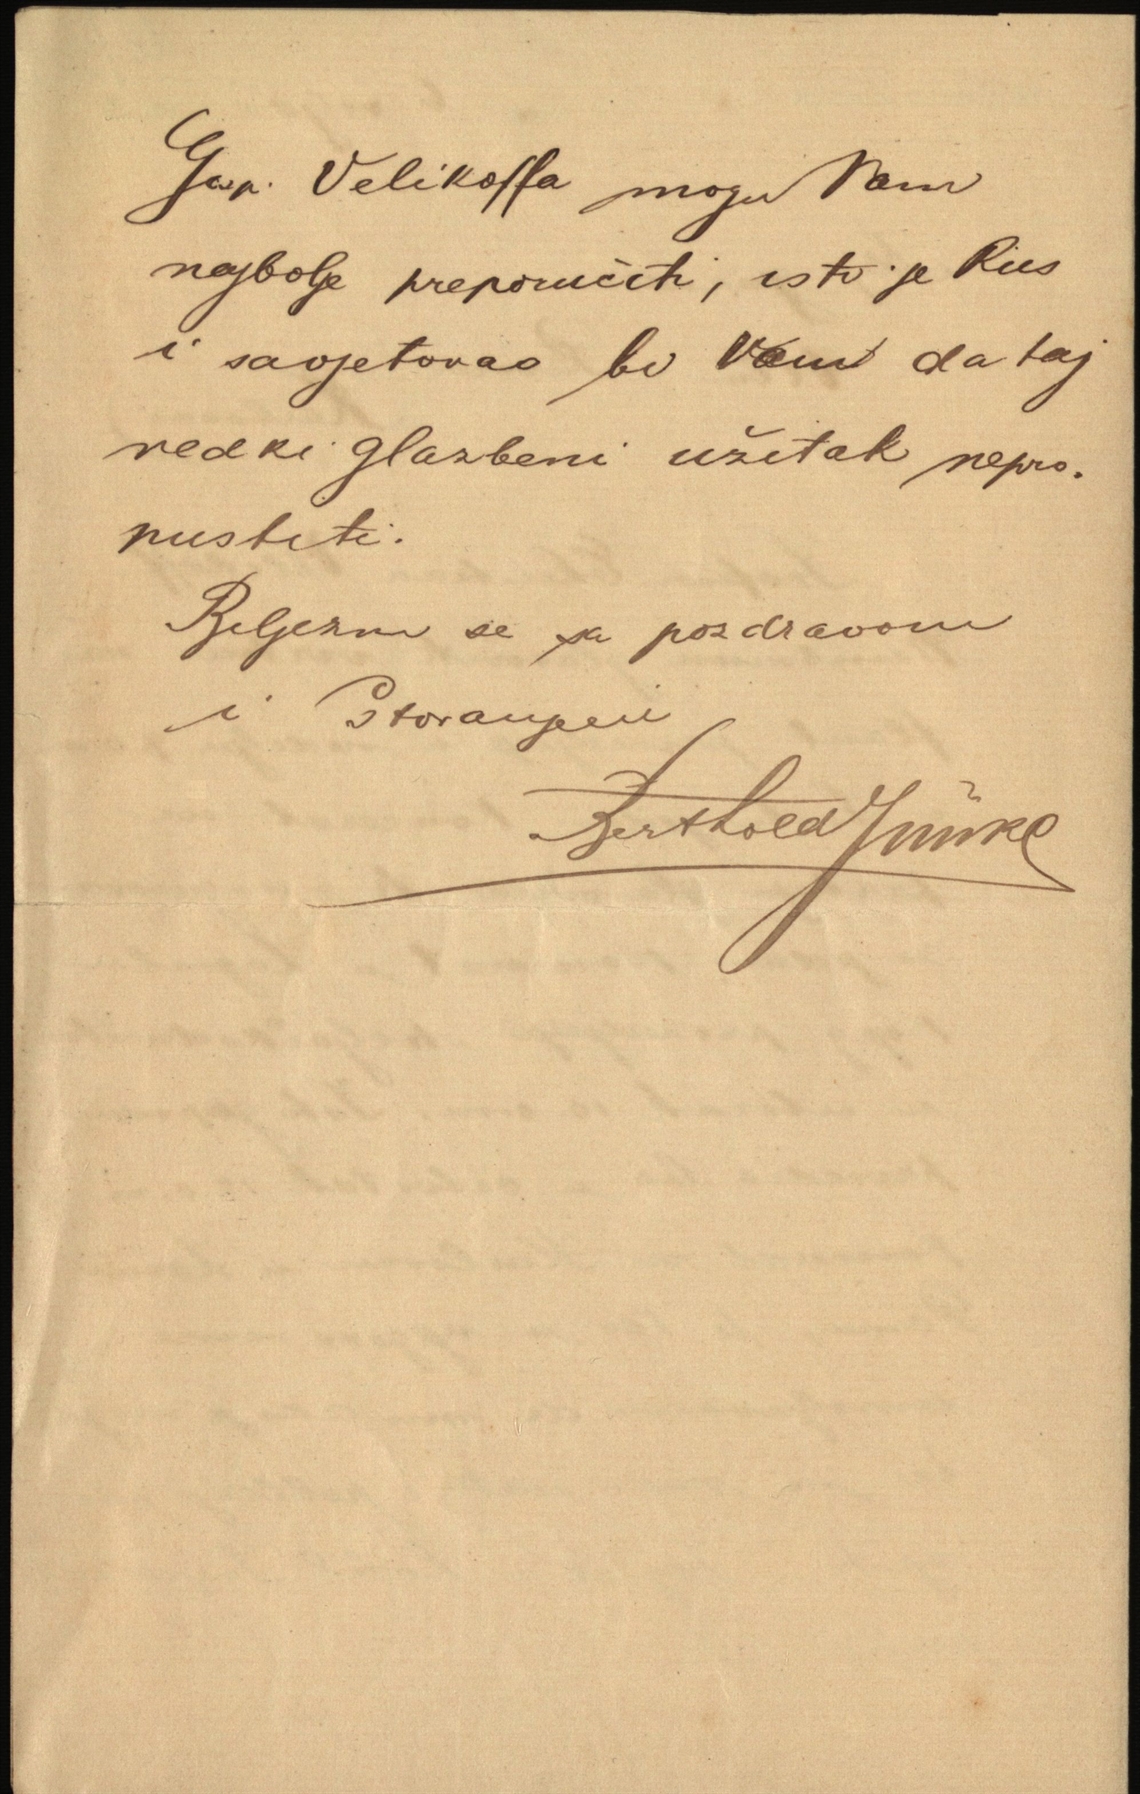 Gosp. Velikoffa mogu Vam
najbolje preporučiti, isti je Rus
i savjetovao bi Vam da taj
redki glazbeni užitak nepro-
pustiti.
Bilježim se sa pozdravom
i štovanjem
Berthold